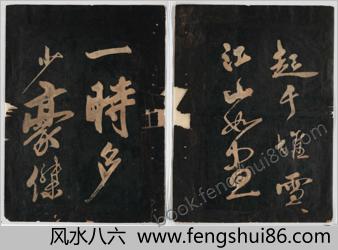 起千堆雪
江山如畫
一時多
少豪傑
風水八六 www.fengshui86.com
book.fengshui86.com